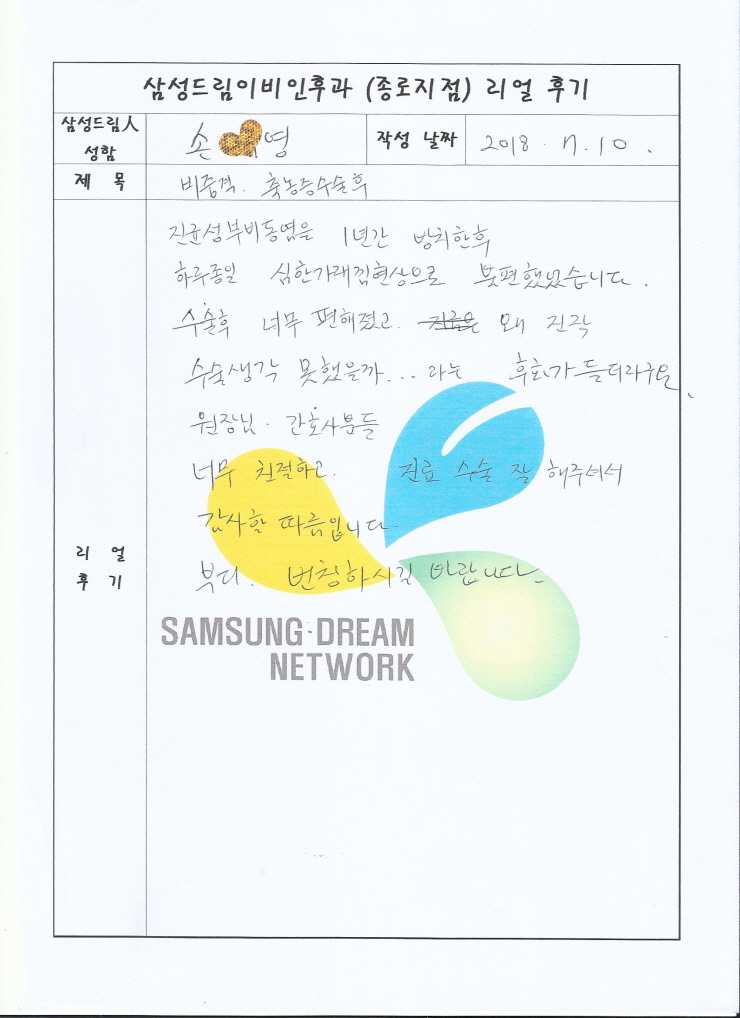 삼성드림이비인후과 (종로지점) 리얼 후기
삼성드림人 성함 손 영 작성 날짜 2018. 7. 10.
제 목 비중격. 축농증수술후
진균성부비동염을 1년간 방치한후
하루종일 심한가래낌현상으로 불편했었습니다.
수술후 너무 편해졌고. 왜 진작
수술생각 못했을까... 라는 후회가 들더라구요.
원장님. 간호사분들
너무 친절하고. 진료 수술 잘 해주셔서
감사할 따름입니다.
부디. 번창하시길 바랍니다.
리 얼
후 기
SAMSUNG·DREAM
NETWORK